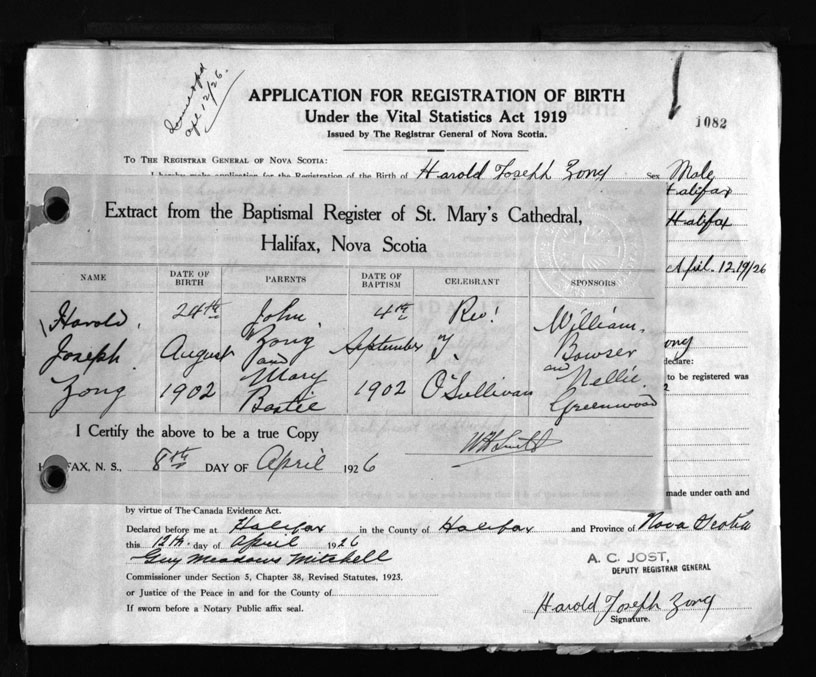 APPLICATION FOR REGISTRATION OF BIRTH
Under the Vital Statistics Act 1919
Issued by The Registrar General of Nova Scotia.
1082
apl 12/26.
TO THE REGISTRAR GENERAL OF NOVA SCOTIA:
I hereby make application for the Registration of the Birth of Harold Joseph Zong Sex Male
Halifax
Halifax
April. 12.19/26
Extract from the Baptismal Register of St. Mary's Cathedral,
Halifax, Nova Scotia
NAME DATE OF BIRTH PARENTS DATE OF BAPTISM CELEBRANT SPONSORS
Harold 24th John 4th Rev! William
Joseph August Zong September Y. Bowser
and and
Zong 1902 Mary 1902 O'Sullivan Nellie
Bastie Greenwood
ong
declare:
to be registered was
2
I Certify the above to be a true Copy
FAX, N. S., 8th DAY OF April 1926
made under oath and
by virtue of The Canada Evidence Act.
Declared before me at Halifax in the County of Halifax and Province of Nova Scotia
this 12th. day of April 1926
Guy Meadows Mitchell
A. C. JOST,
DEPUTY REGISTRAR GENERAL
Commissioner under Section 5, Chapter 38, Revised Statutes, 1923.
or Justice of the Peace in and for the County of
If sworn before a Notary Public affix seal.
Harold Joseph Zong
Signature.